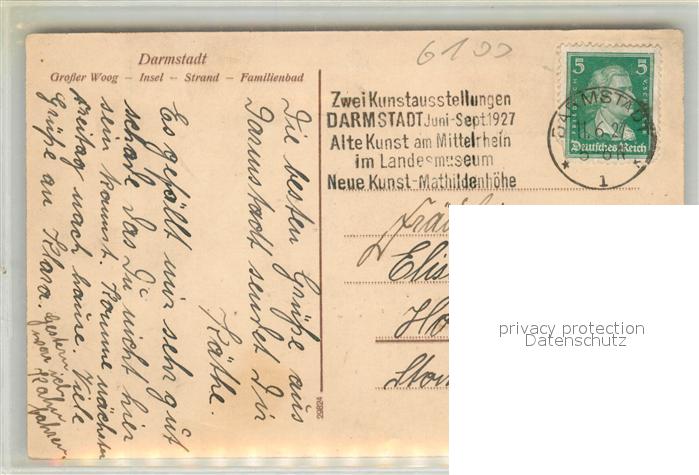 Darmstadt
Großer Woog – Insel – Strand – Familienbad
6100
Zwei Kunstausstellungen
DARMSTADT Juni-Sept.1927
Alte Kunst am Mittelrhein
im Landesmuseum
Neue Kunst-Mathildenhöhe
5 5
Deutsches Reich
DARMSTADT
1
Die besten Grüße aus
Darmstadt sendet Dir
Käthe.
Es gefällt mir sehr gut
schade das Du nicht hier
sein kannst. Komme nächsten
Freitag nach hause. Viele
Grüße an Klara.
Gestern
29824
privacy protection
Datenschutz